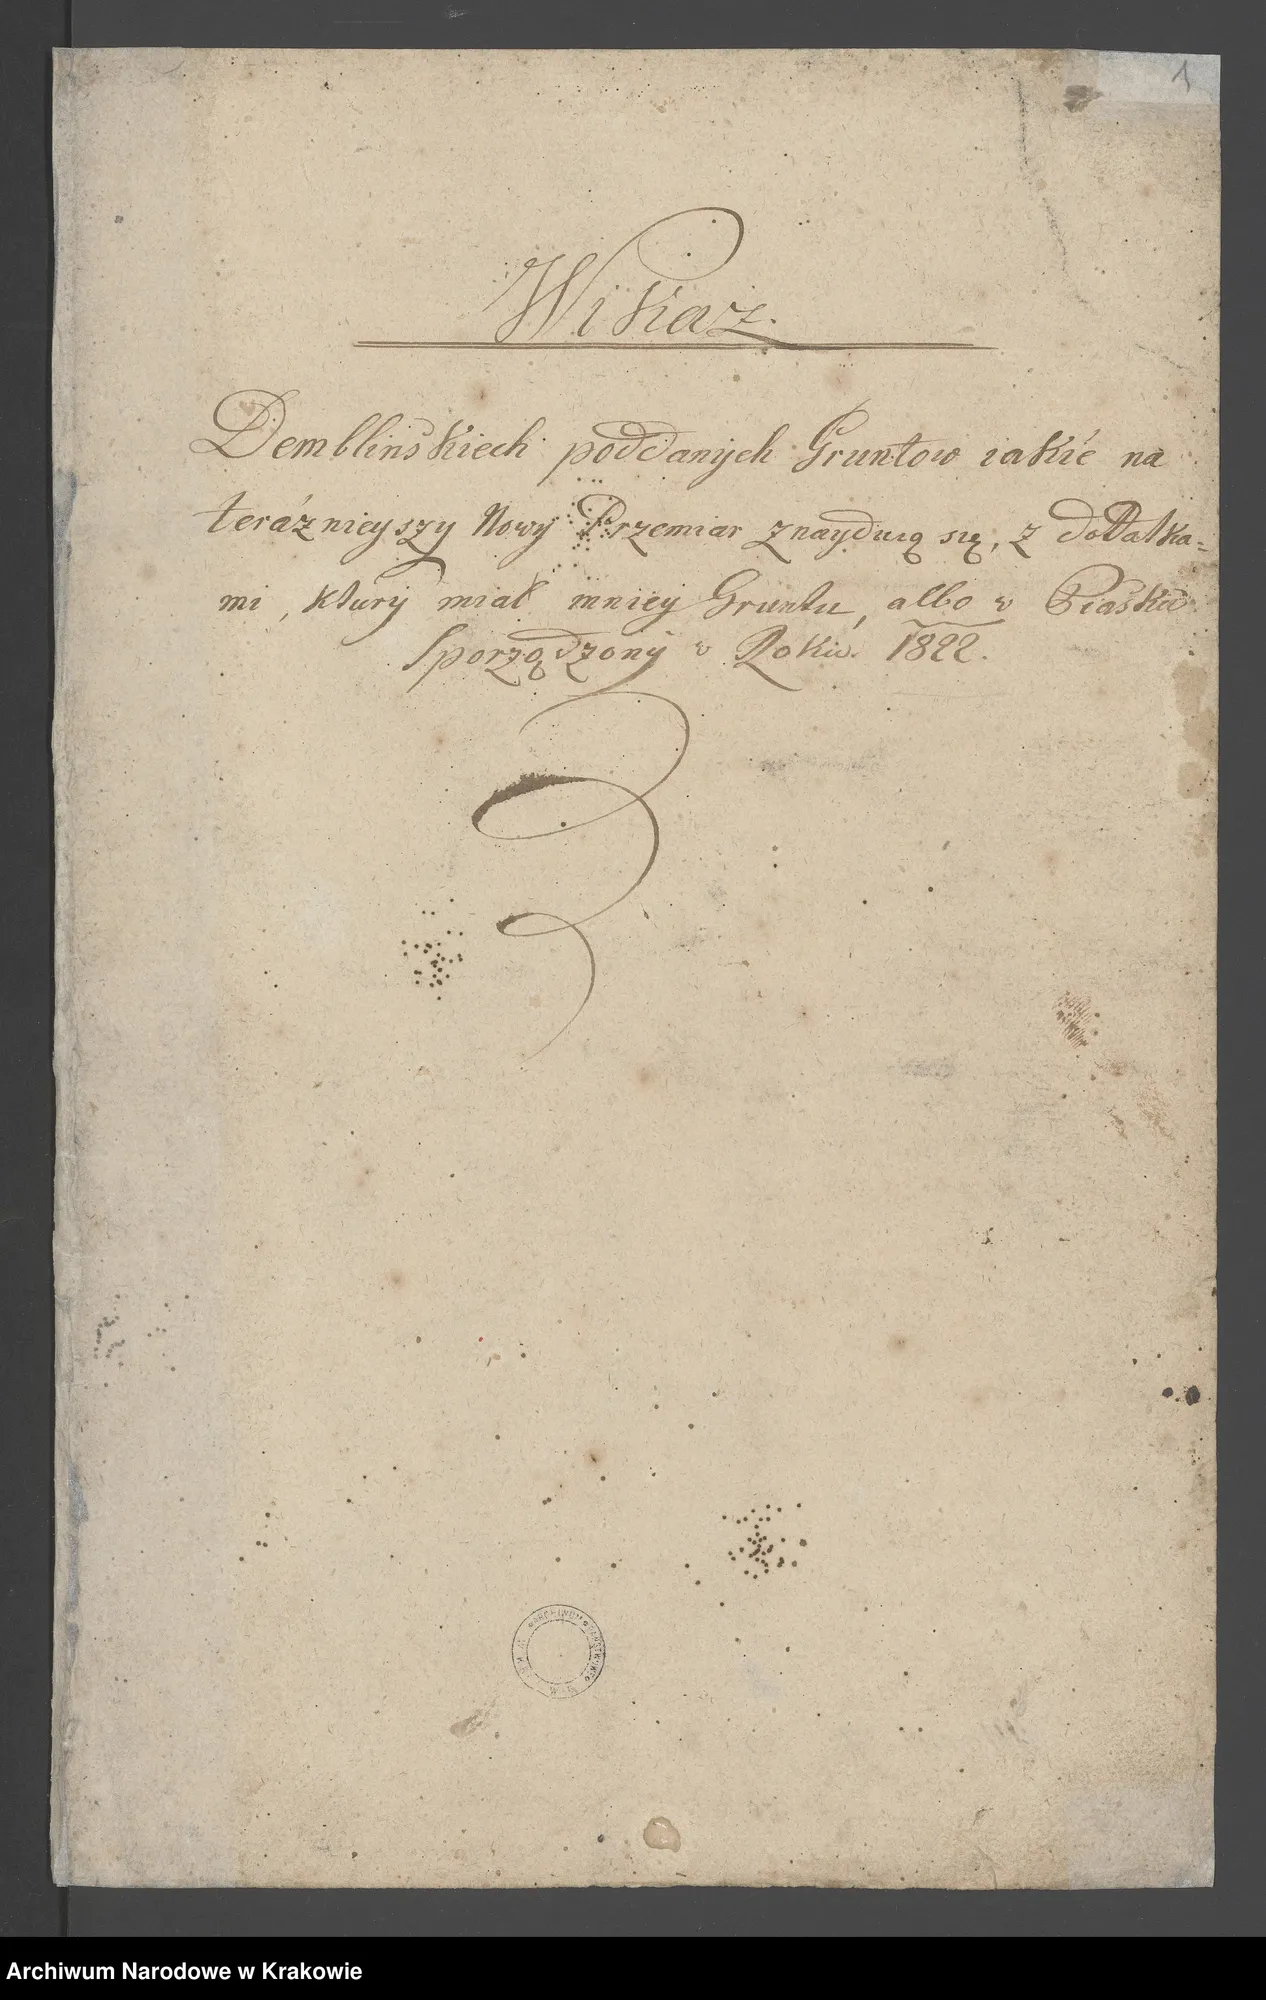 1
Wikaz.
Demblinskiech poddanych Gruntow iakie na
teráznieyszy Nowy Przemiar znayduią się, z dodatka=
mi, ktury miał mniey Gruntu, albo w Piasku
Sporządzony w Roku. 1822.
ARCHIWUM PAŃSTWOWE
Archiwum Narodowe w Krakowie